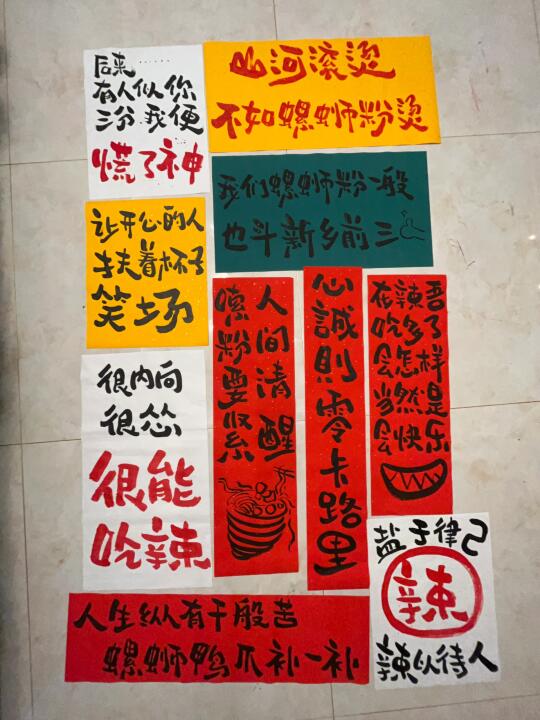 后来......
有人似你
三分 我便
慌了神
山河滚烫
不如螺蛳粉烫
我们螺蛳粉一般
也斗新乡前三
让开心的人
扶着杯子
笑场
人间清醒
嗦粉要紧
心誠則零卡路里
在辣吾
吃多了
会怎样
当然是
会快乐
很内向
很怂
很能
吃辣
盐于律己
辣
辣以待人
人生纵有千般苦
螺蛳鸭爪补一补